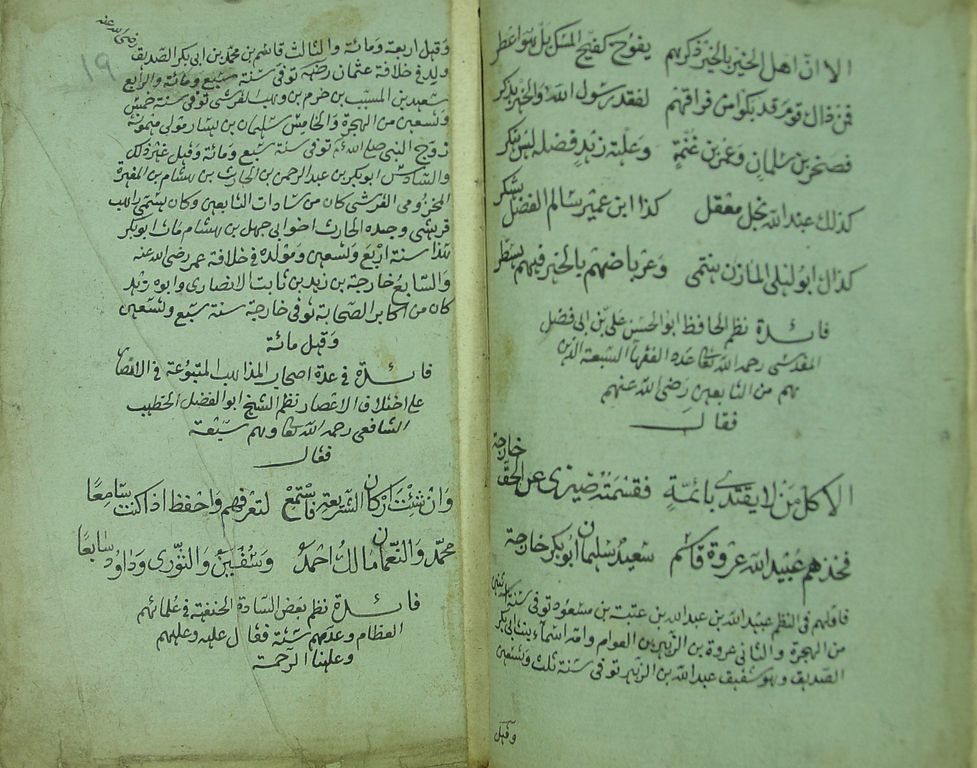 الا انّ اهل الخير بالخير ذكرهم يفوح كفيح المسك بل هو اعطر
فمن ذاك قوم قد بكوا من فراقهم لفقد رسول الله والخير يذكر
فصخر بن سلمان وعمر بن غنمة وعلته زيد فضله ليس ينكر
كذلك عبد الله نجل معقل كذا ابن عمير سالم الفضل يشكر
كذاك ابو ليلى المازن ينتمى وعرباضهم بالخير فيهم يسطر
فائدة نظم الحافظ ابو الحسن على بن ابى فضل
المقدسى رحمه الله تعا عدد الفقها السبعة الذين
هم من التابعين رضى الله عنهم
فقال
الا كل من لا يقتدى بائمة فقسمته ضيزى عن الحق خارجة
فخذهم عبيد الله عروة قاسم سعيد سلمان ابو بكر خارجة
فاولهم فى النظم عبيد الله بن عبد الله بن عتبة بن مسعود توفى سنة
من الهجرة والثانى عروة بن الزبير بن العوام وامه اسماء بنت ابى بكر
الصديق وهو شقيق عبد الله بن الزبير توفى سنة ثلث وتسعين
وقيل
وقيل اربعة ومائة والثالث قاسم بن محمد بن ابى بكر الصديق رضى الله عنه
ولد فى خلافة عثمان رضه توفى سنة سبع ومائة والرابع
سعيد بن المسيب بن حزم بن وهب القرشى توفى سنة خمس
وتسعين من الهجرة والخامس سليمان بن يسار مولى ميمونة
زوج النبى صلى الله توفى سنة سبع ومائة وقيل غير ذلك
والسادس ابو بكر بن عبد الرحمن بن الحارث بن هشام بن المغيرة
المخزومى القرشى كان من سادات التابعين وكان يسمى راهب
قريش وجده الحارث اخو ابى جهل بن هشام مات ابو بكر
هذا سنة اربع وتسعين ومولده فى خلافة عمر رضى الله عنه
والسابع خارجة بن زيد بن ثابت الانصارى وابوه زيد
كان من اكابر الصحابة توفى خارجة سنة سبع وتسعين
وقيل مائة
فائدة فى عدة اصحاب المذاهب المتبوعة فى الامصار
على اختلاف الاعصار نظم الشيخ ابو الفضل الخطيب
الشافعى رحمه الله تعا وهم سبعة
فقال
وان شئت اركان الشريعة فاستمع لتعرفهم واحفظ اذا كنت سامعا
محمد والنعمان مالك احمد وسفين والثورى وداود سابعا
فائدة نظم بعض السادة الحنفية فى علمائهم
العظام وعدهم ستة فقال عليه وعليهم
وعلينا الرحمة
١٩